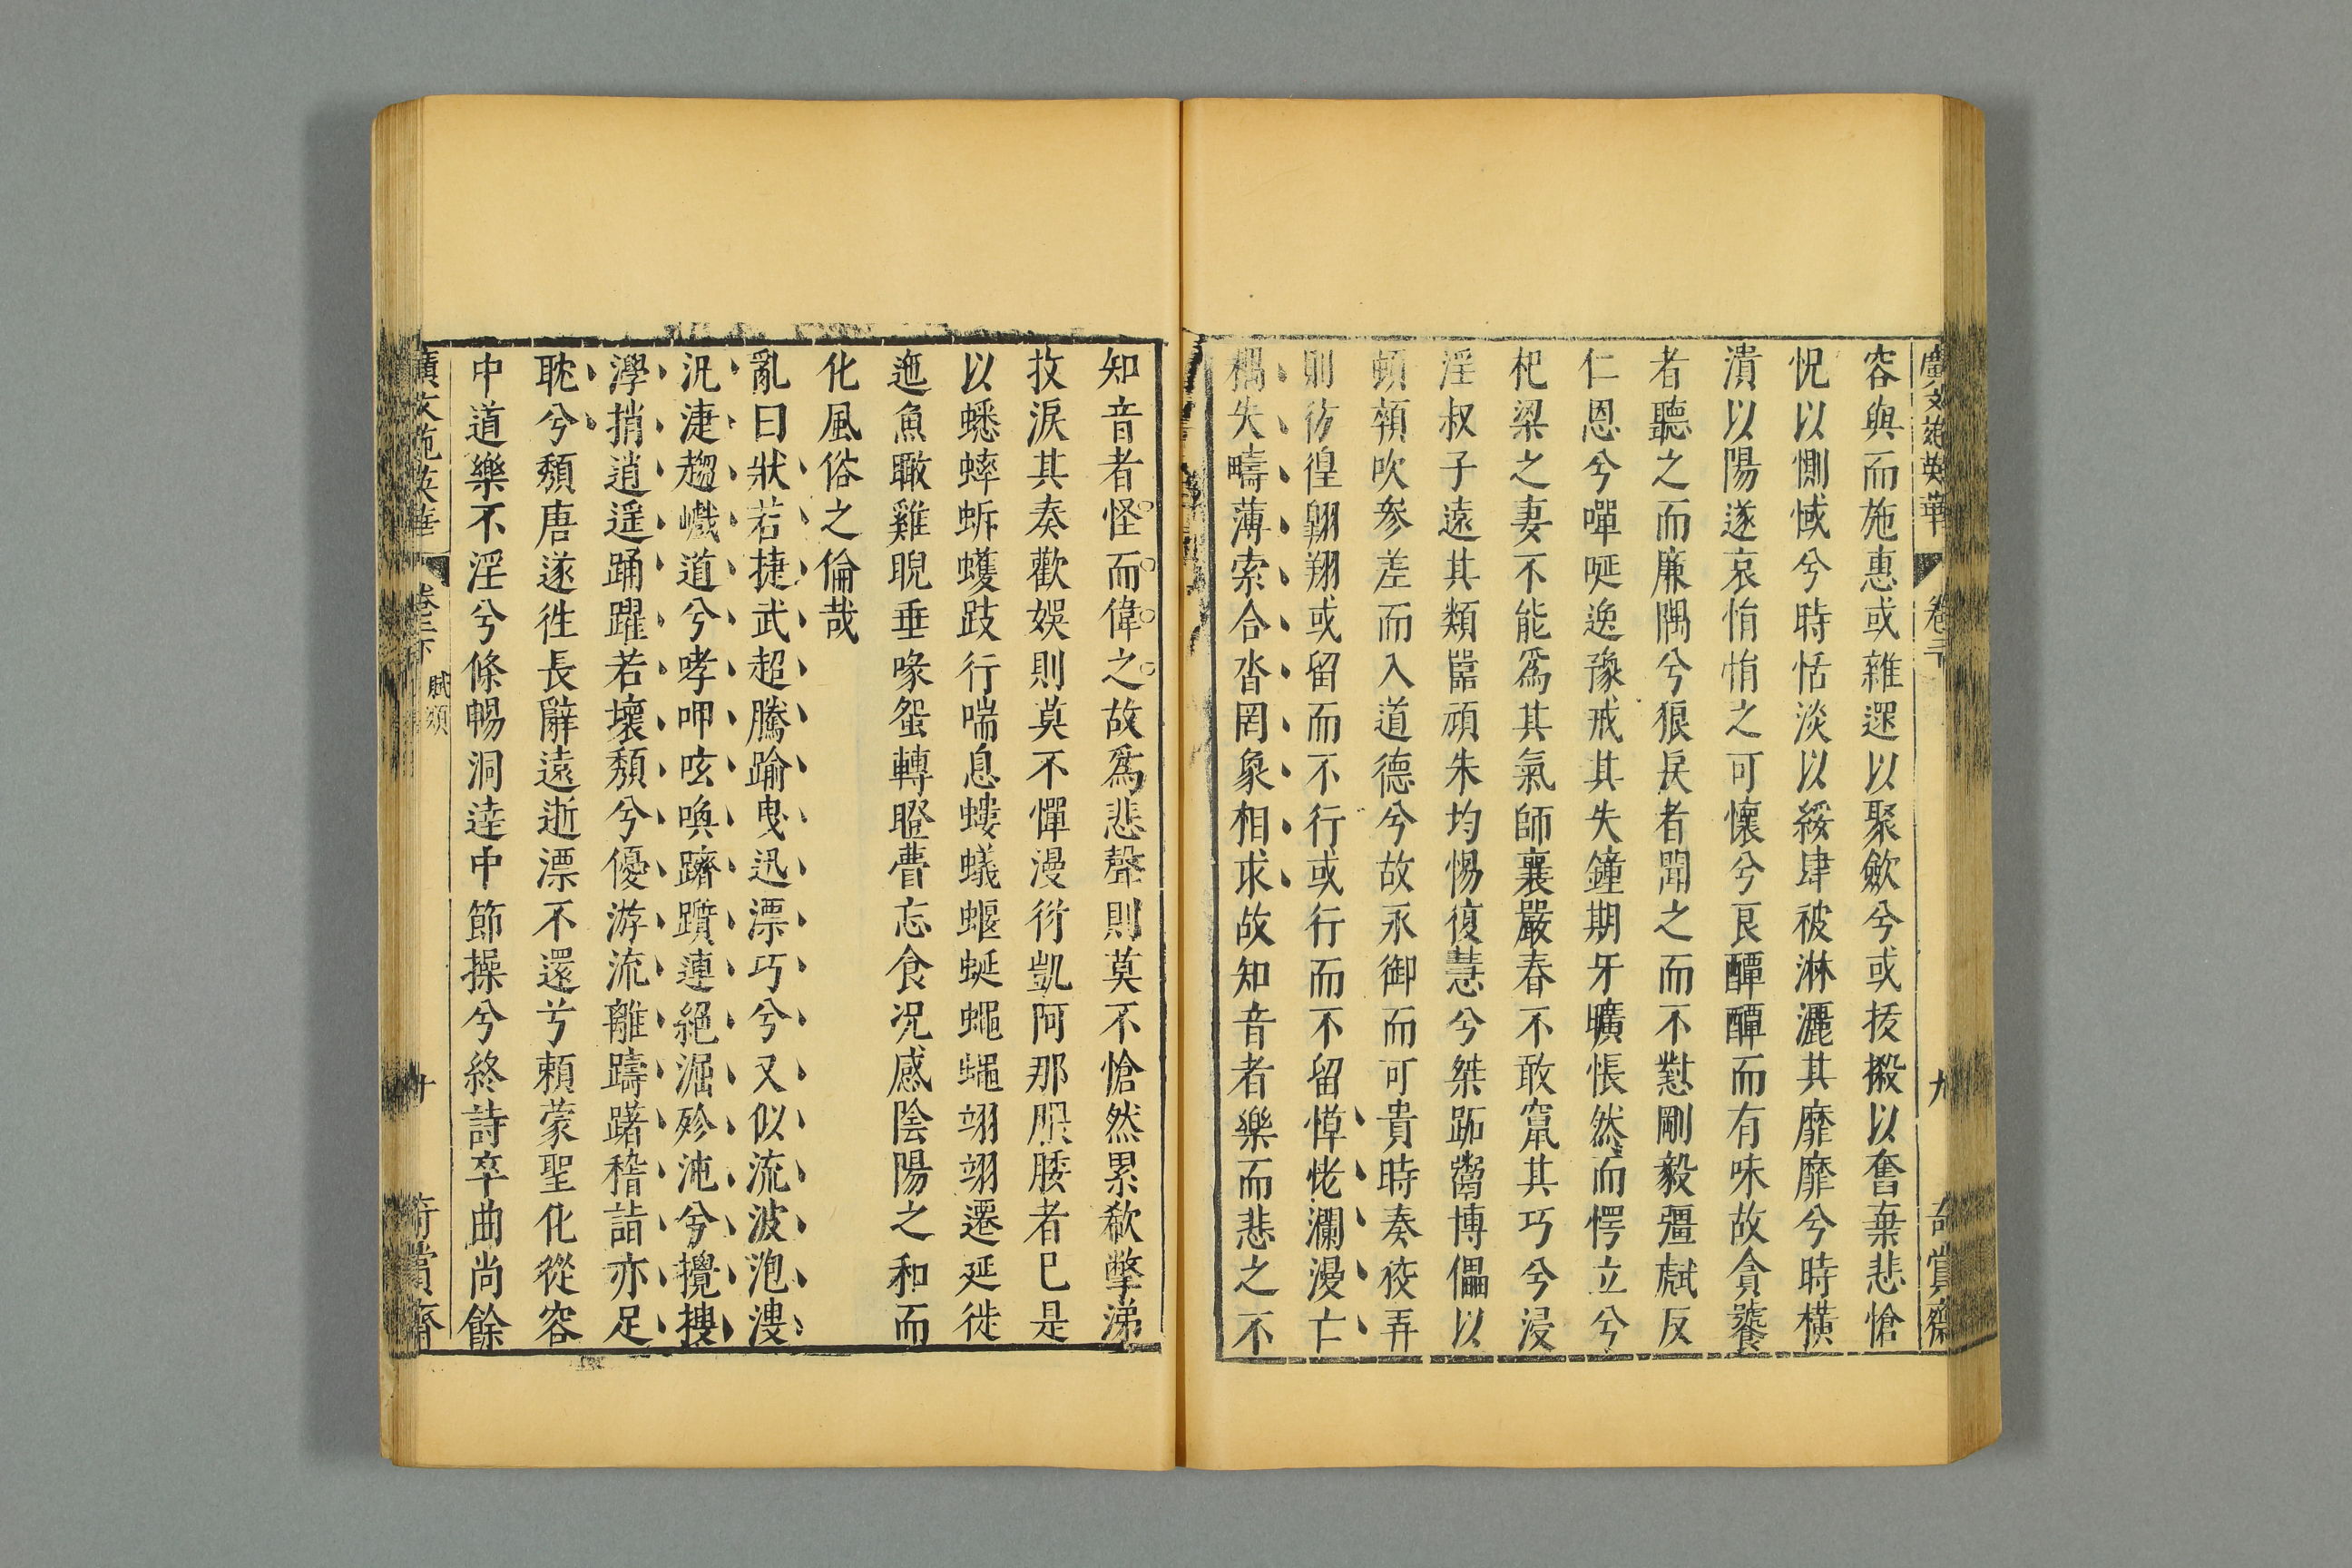 廣文苑英華
九
奇賞齋
容與而施惠或雜遝以聚歛兮或拔摋以奮棄悲愴
怳以惻惐兮時恬淡以綏肆被淋灑其靡靡兮時橫
潰以陽遂哀悁悁之可懷兮良醰醰而有味故貪饕
者聽之而廉隅兮狼戾者聞之而不懟剛毅彊虣反
仁恩兮嘽唌逸豫戒其失鐘期牙曠悵然而愕立兮
杞梁之妻不能爲其氣師襄嚴春不敢竄其巧兮浸
淫叔子遠其類嚚頑朱均惕復慧兮桀跖鬻博儡以
頓顇吹參差而入道德兮故永御而可貴時奏狡弄
則彷徨翱翔或留而不行或行而不留愺恅瀾漫亡
耦失疇薄索合沓罔象相求故知音者樂而悲之不
知音者怪而偉之故爲悲聲則莫不愴然累欷擎涕
抆淚其奏歡娛則莫不憚漫衍凱阿那腲腇者已是
以蟋蟀蚸蠖跂行喘息螻蟻蝘蜒蠅蠅翊翊遷延徙
迤魚瞰雞睨垂喙蛩轉瞪瞢忘食況感陰陽之和而
化風俗之倫哉
亂曰狀若捷武超騰踰曳迅漂巧兮又似流波泡溲
汎㴔趨巇道兮哮呷呟喚躋躓連絕淈殄沌兮攪搜
㶅捎逍遥踊躍若壞頹兮優游流離躊躇稽詣亦足
耽兮頹唐遂徃長辭遠逝漂不還兮賴蒙聖化從容
中道樂不淫兮條暢洞逹中節操兮終詩卒曲尚餘
廣文苑英華
賦類
十
奇賞齋